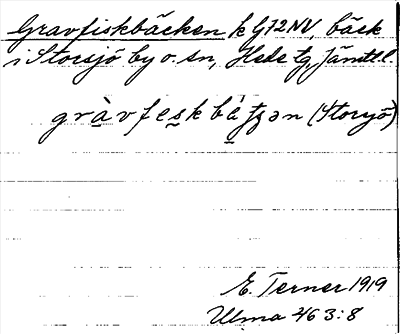 Gravfiskbäcken k G72NV, bäck
i Storsjö by o. sn, Hede tg, Jämtl.l.
gràvfeskbátʒən (Storsjö)
E. Terner 1919
Ulma 463:8